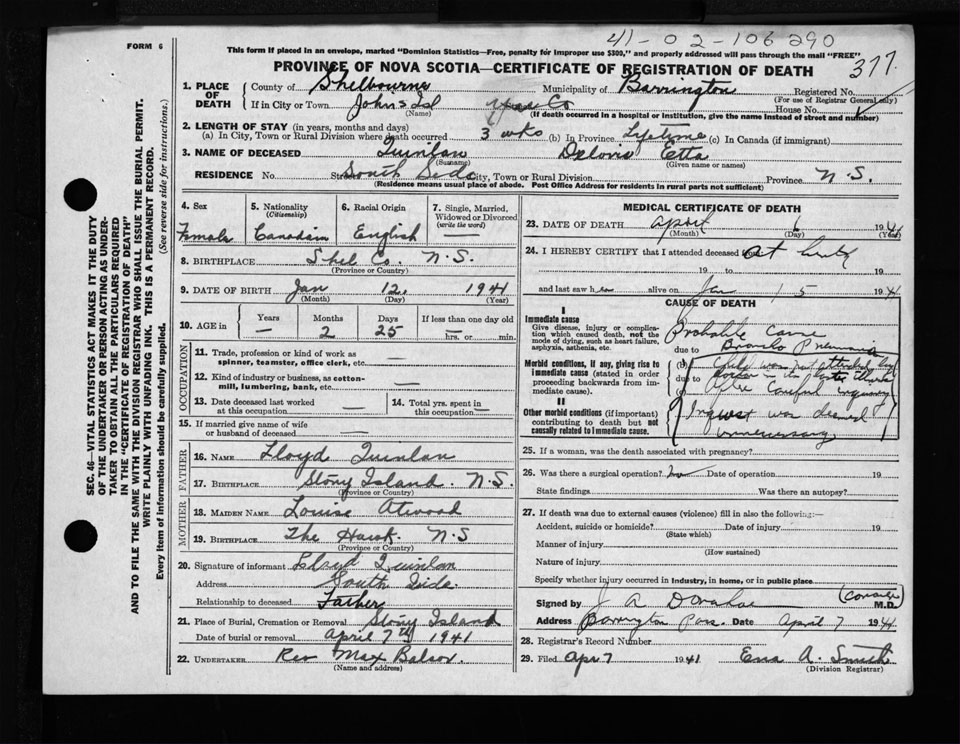 41-02-106290
377.
FORM 6
This form if placed in an envelope, marked "Dominion Statistics—Free, penalty for improper use $300," and properly addressed will pass through the mail "FREE"
PROVINCE OF NOVA SCOTIA—CERTIFICATE OF REGISTRATION OF DEATH
1. PLACE OF DEATH
County of Shelbourne Municipality of Barrington Registered No.
(For use of Registrar General only)
If in City or Town Johns Isl House No.
(Name) (If death occurred in a hospital or institution, give the name instead of street and number)
2. LENGTH OF STAY (in years, months and days)
(a) In City, Town or Rural Division where death occurred 3 wks (b) In Province Lifetime (c) In Canada (if immigrant)
3. NAME OF DECEASED Quinlan Deloris Etta
(Surname) (Given name or names)
RESIDENCE No. Street South Side City, Town or Rural Division Province N.S.
(Residence means usual place of abode. Post Office Address for residents in rural parts not sufficient)
4. Sex Female
5. Nationality (Citizenship) Canadian
6. Racial Origin English
7. Single, Married, Widowed or Divorced (write the word) —
8. BIRTHPLACE Shel Co. N.S.
(Province or Country)
9. DATE OF BIRTH Jan 12, 1941
(Month) (Day) (Year)
10. AGE in Years — Months 2 Days 25 If less than one day old — hrs. or min.
OCCUPATION
11. Trade, profession or kind of work as spinner, teamster, office clerk, etc. —
12. Kind of industry or business, as cotton-mill, lumbering, bank, etc. —
13. Date deceased last worked at this occupation —
14. Total yrs. spent in this occupation —
15. If married give name of wife or husband of deceased —
FATHER
16. NAME Lloyd Quinlan
17. BIRTHPLACE Stony Island. N.S.
(Province or Country)
MOTHER
18. MAIDEN NAME Louise Atwood
19. BIRTHPLACE The Hawk. N.S
(Province or Country)
20. Signature of informant Lloyd Quinlan
Address South Side.
Relationship to deceased Father
21. Place of Burial, Cremation or Removal Stony Island
Date of burial or removal April 7th 1941
22. UNDERTAKER Rev Max Balsor.
(Name and address)
MEDICAL CERTIFICATE OF DEATH
23. DATE OF DEATH April 6 1941
(Month) (Day) (Year)
24. I HEREBY CERTIFY that I attended deceased
19 to 19
and last saw h alive on Jan 15 1941
CAUSE OF DEATH
I
Immediate cause
Give disease, injury or complication which caused death, not the mode of dying, such as heart failure, asphyxia, asthenia, etc.
Probable cause
due to Broncho Pneumonia
Morbid conditions, if any, giving rise to immediate cause (stated in order proceeding backwards from immediate cause).
(b) Child was not attended by
due to doctor
After careful inquiry
II
Other morbid conditions (if important) contributing to death but not causally related to immediate cause.
Inquest was deemed
unnecessary
25. If a woman, was the death associated with pregnancy?
26. Was there a surgical operation? no Date of operation 19
State findings Was there an autopsy?
27. If death was due to external causes (violence) fill in also the following:—
Accident, suicide or homicide? Date of injury 19
(State which)
Manner of injury
(How sustained)
Nature of injury
Specify whether injury occurred in industry, in home, or in public place
Signed by J A Donahoe (Coroner) M.D.
Address Barrington Pass. Date April 7 1941
28. Registrar's Record Number
29. Filed Apr 7 1941 Ena A. Smith
(Division Registrar)
SEC. 46—VITAL STATISTICS ACT MAKES IT THE DUTY
OF THE UNDERTAKER OR PERSON ACTING AS UNDER-
TAKER TO OBTAIN ALL THE PARTICULARS REQUIRED
IN THE "CERTIFICATE OF REGISTRATION OF DEATH"
AND TO FILE THE SAME WITH THE DIVISION REGISTRAR WHO SHALL ISSUE THE BURIAL PERMIT.
WRITE PLAINLY WITH UNFADING INK. THIS IS A PERMANENT RECORD.
Every item of information should be carefully supplied. (See reverse side for instructions.)